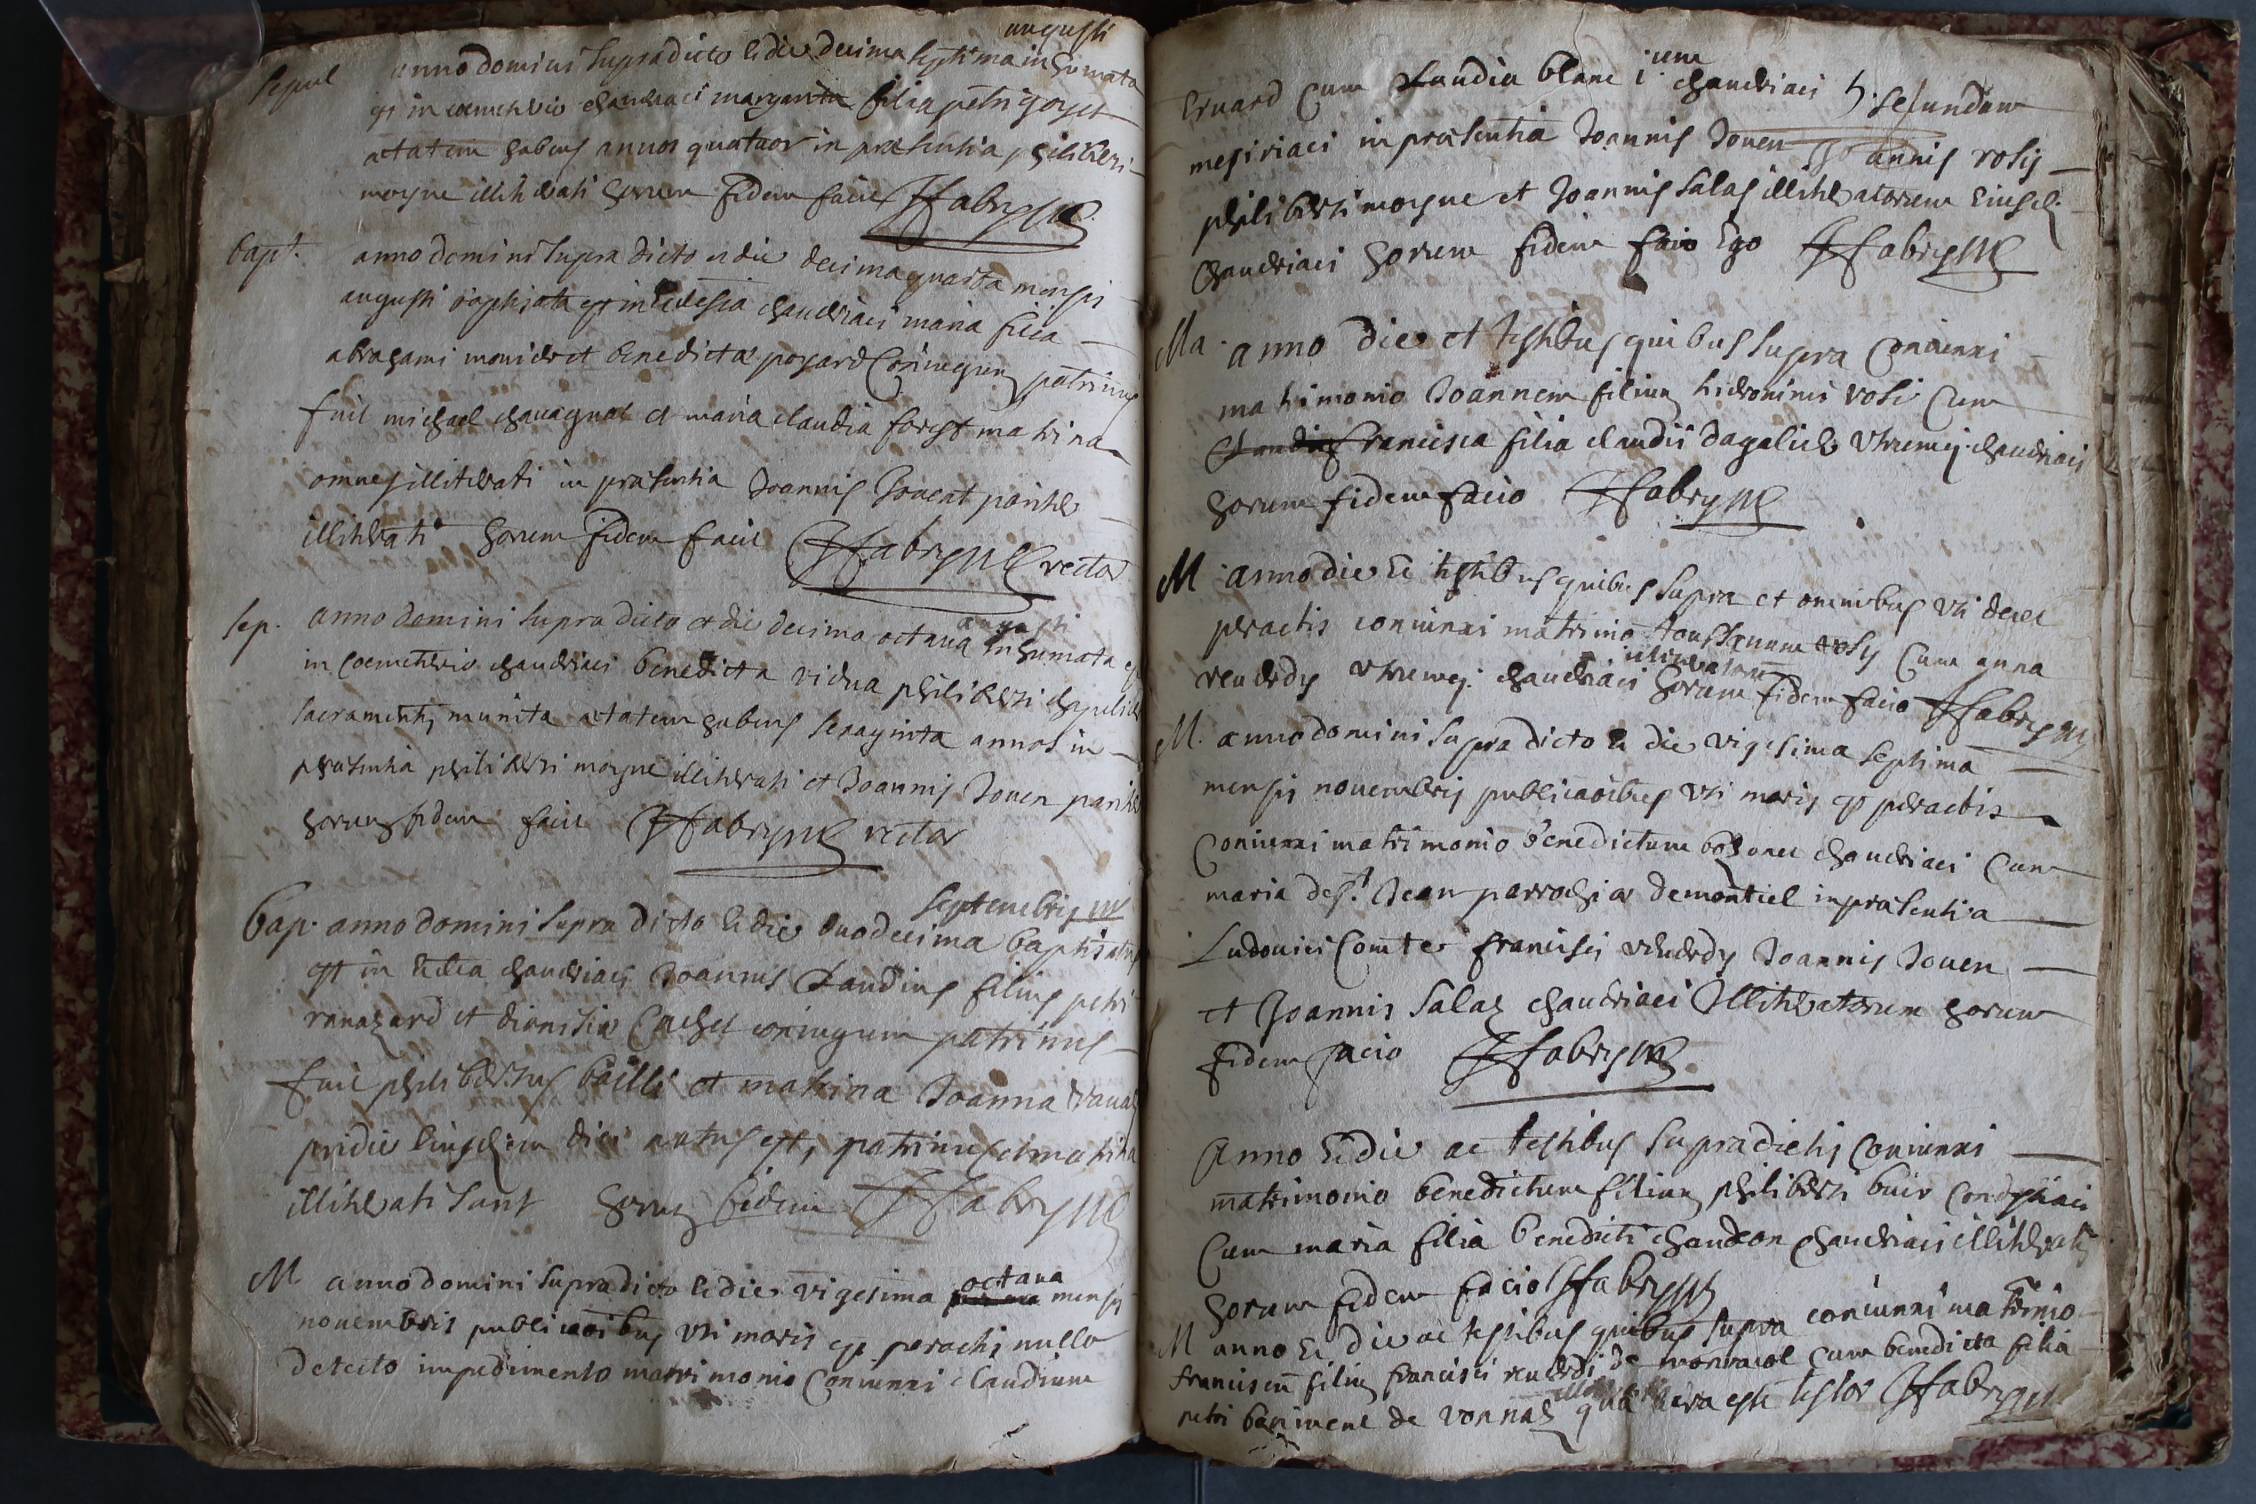 augusti
Sepul anno domini supradicto et die decima septima inhumata
est in coemeterio chaveriaci margarita filia petri goyet
aetatem habens annos quatuor in praesentia philiberti
moyne illitterati horum fidem facio Ffabry
bapt. anno domini supra dicto et die decima quarta mensis
augusti baptisata est in ecclesia chaveriaci maria filia
abrahami monier et benedicta poyard coniugum patrinus
fuit michael chavagnat et maria claudia forest matrina
omnes illiterati in praesentia Joannis Jovent pariter
illitterati horum fidem facio Ffabry rector
augusti
sep. anno domini supra dicto et die decima octava inhumata est
in coemeterio chaveriaci benedicta vidua philiberti
sacramentis munita aetatem habens sexaginta annos in
praesentia philiberti moyne illitterati et Joannis Joven pariter
horum fidem facio Ffabry rector
septembris
bap. anno domini supra dicto et die duodecima baptisatus
est in ecclia chaveriaci Joannes Claudius filius petri
ravazard et dionisia Cachet coniugum patrinus
fuit philibertus bailli et matrina Joanna
pridie eiusdem diei natus est, patrinus et matrina
illitterati sunt horum fidem Ffabry
octava
M anno domini supradicto et die vigesima mensis
novembris publicaoibus uti moris est peractis nullo
detecto impedimento matrimonio coniunxi Claudium
Evrard cum Claudia blanc chaveriaci secundam
mesiriaci in praesentia Joannis Joven Joannis rosy
philiberti moyne et Joannis salaz illitteratorum eiusdem
chaveriaci horum fidem facio Ego Ffabry
Ma. anno die et testibus quibus supra coniunxi
matrimonio Joannem filium hieronimi rosi cum
francisca filia claudii dagalier utrumq chaveriaci
horum fidem facio Ffabry
M anno die et testibus quibus supra et omnibus uti decet
peractis coniunxi matrimo toussanum rosy cum anna
illitteratorum
reverdy utrumq. chaveriaci horum fidem facio Ffabry
M. anno domini supra dicto et die vigesima septima
mensis novembris publicaoibus uti moris est peractis
coniunxi matrimonio benedictum bozonet chaveriaci cum
maria de st. Jean parrochia de montiel in praesentia
Ludovici Comte francisci reverdy Joannis Joven
et Joannis salaz chaveriaci Illitteratorum horum
fidem facio Ffabry
Anno et die ac testibus supradictis coniunxi
matrimonio benedictum filium philiberti buir
cum maria filia benedicti chaudon chaveriaci illitterati
horum fidem facio Ffabry
M anno et die ac testibus quibus supra coniunxi matrimio
franciscu filiu francisci reverdi de cum benedicta filia
petri de vonnaz quae vera esse testor Ffabry